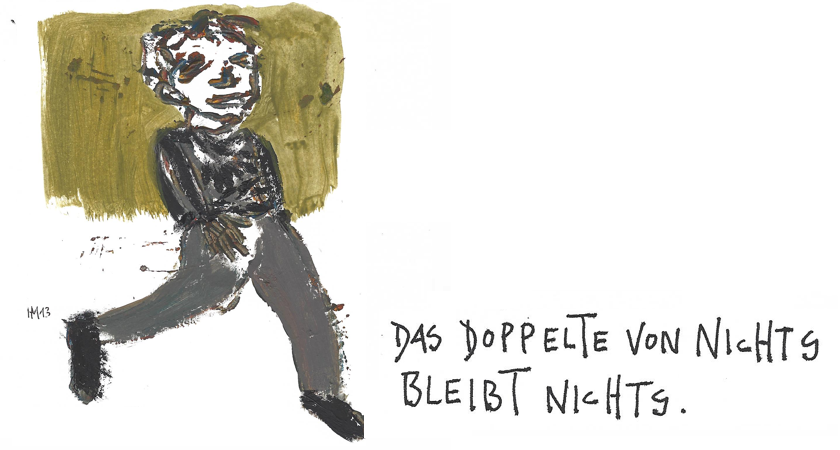 HM13
DAS DOPPELTE VON NICHTS
BLEIBT NICHTS.